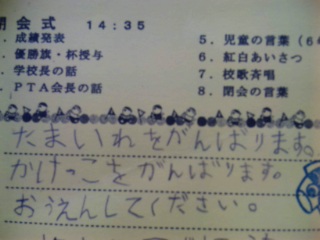 閉会式 14:35
．成績発表
．優勝旗・杯授与
．学校長の話
．PTA会長の話
5．児童の言葉（6年
6．紅白あいさつ
7．校歌斉唱
8．閉会の言葉
たまいれをがんばります。
かけっこをがんばります。
おうえんしてください。